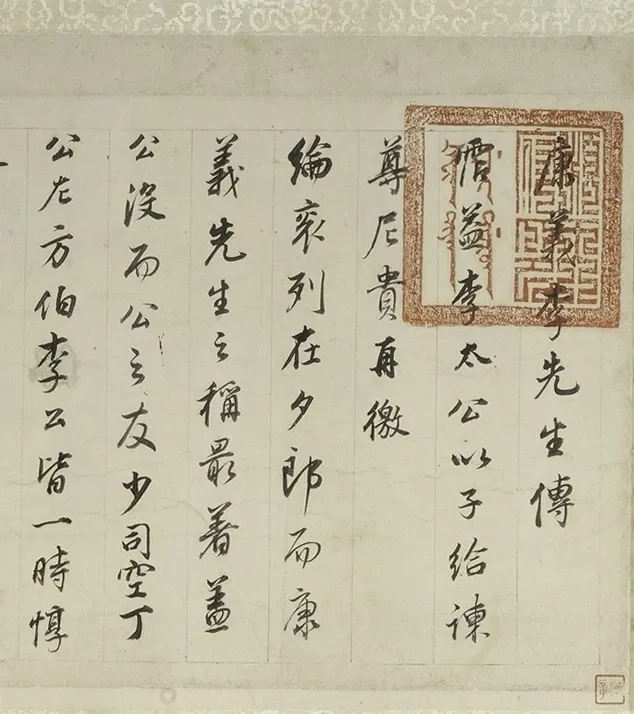 康義李先生傳
霑益李太公以子給諫
尊尼貴再徼
綸衮列在夕郎而康
義先生之稱最著蓋
公没而公之友少司空丁
公左方伯李公皆一時惇